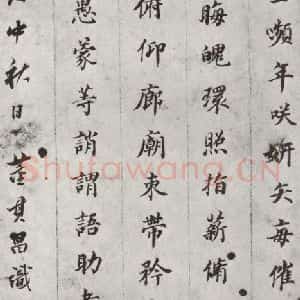 嚬年咲妍矢每催
晦魄環照指薪脩
俯仰廊廟束帶矜
愚蒙等誚謂語助者
中秋日董其昌識
Shufawang.CN